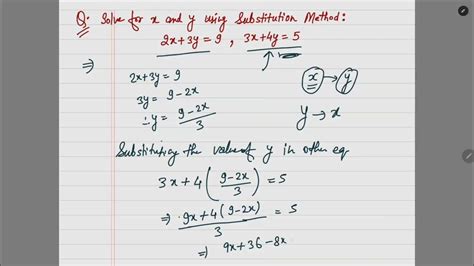 Q. Solve for x and y using Substitution Method:
2x+3y = 9 , 3x+4y = 5
⇒ 2x+3y = 9
3y = 9-2x
∴ y = 9-2x / 3
x → y
y → x
Substituting the value of y in other eq
3x + 4 ( 9-2x / 3 ) = 5
⇒ 9x+4(9-2x) / 3 = 5
⇒ 9x+36-8x